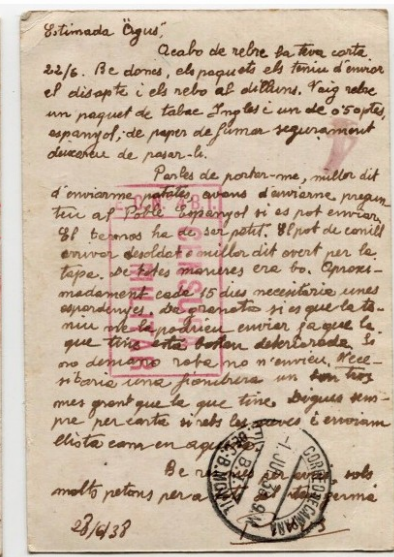 Estimada "Agus",
Acabo de rebre la teva carta
22/6. Be dones, els paquets els teniu d'enviar
el disapte i els rebo al dilluns. Vaig rebre
un paquet de tabac Ingles i un de 0'50 ptes,
espanyol, de paper de fumar segurament
deixereu de posar-li.
Parles de portar-me, millor dit
d'enviarme patates, avans d'enviarme pregun
teu al Poble Espanyol si es pot enviar.
El termos ha de ser petit. El pot de conill
arrivar desoldat o millor dit overt per la
tapa. De totes maneres era bo. Aproxi-
madament cada 15 dies necesitaria unes
espardenyes. La granota si es que la te-
niu me la podrieu enviar ja que la
que tinc esta bohen deteriorada. Si
no demano roba no n'envieu. Nece-
sitaria una fiambrera un tros
mes grant que la que tinc. Digues sem-
pre per carta si rebs les meves i enviam
llista com en
Be res mes per avui, sols
molts petons per a tot el teu germá
28/6/38
CENSURA
MILITAR
CORREO DE CAMPAÑA
1 JUL 38